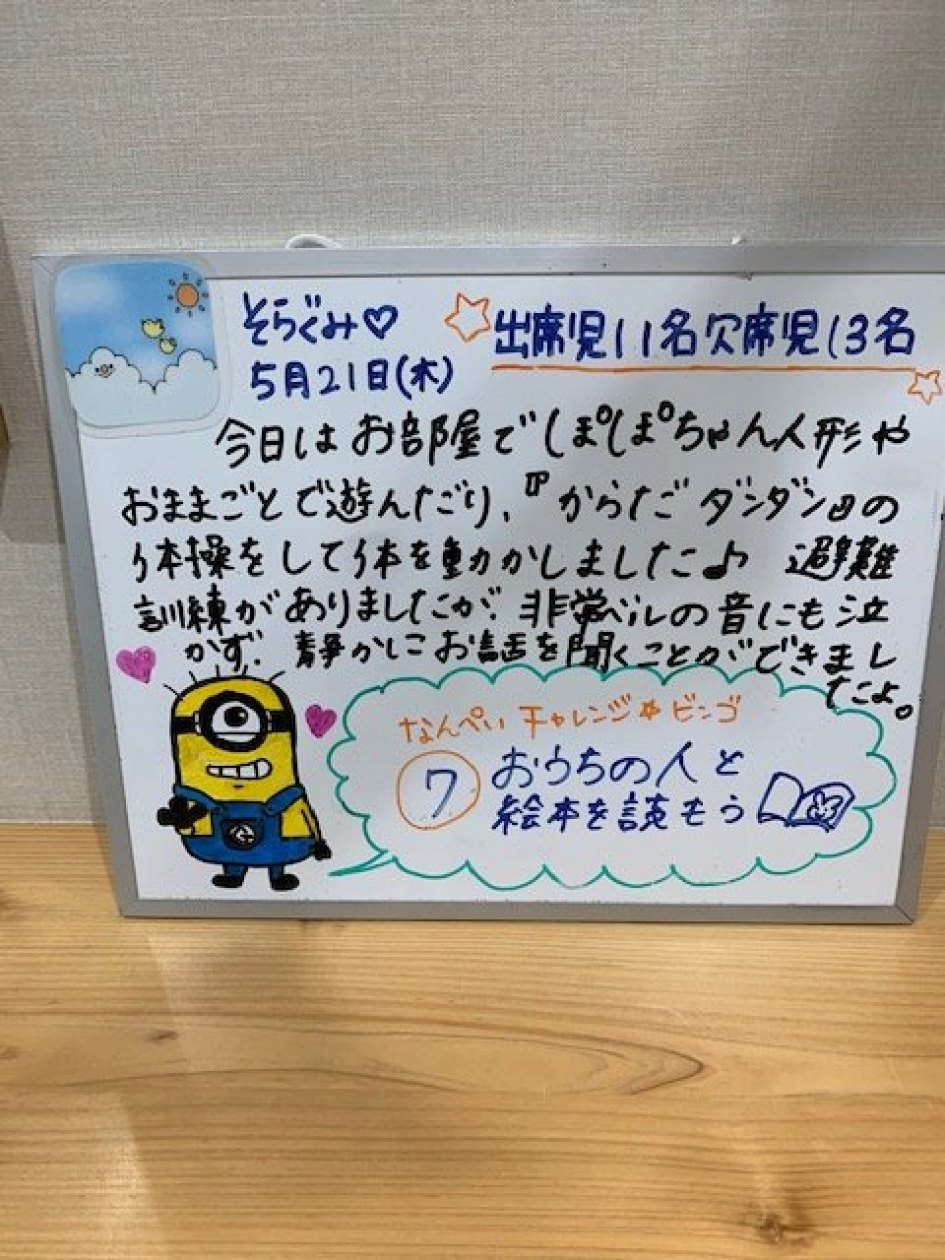 そらぐみ♡
5月21日(木)
☆出席児11名欠席児13名☆
今日はお部屋でぽぽちゃん人形や
おままごとで遊んだり、『からだダンダン』の
体操をして体を動かしました♪ 避難
訓練がありましたが、非常ベルの音にも泣
かず、静かにお話を聞くことができまし
たよ。
なんぺいチャレンジ☆ビンゴ
⑦ おうちの人と
絵本を読もう